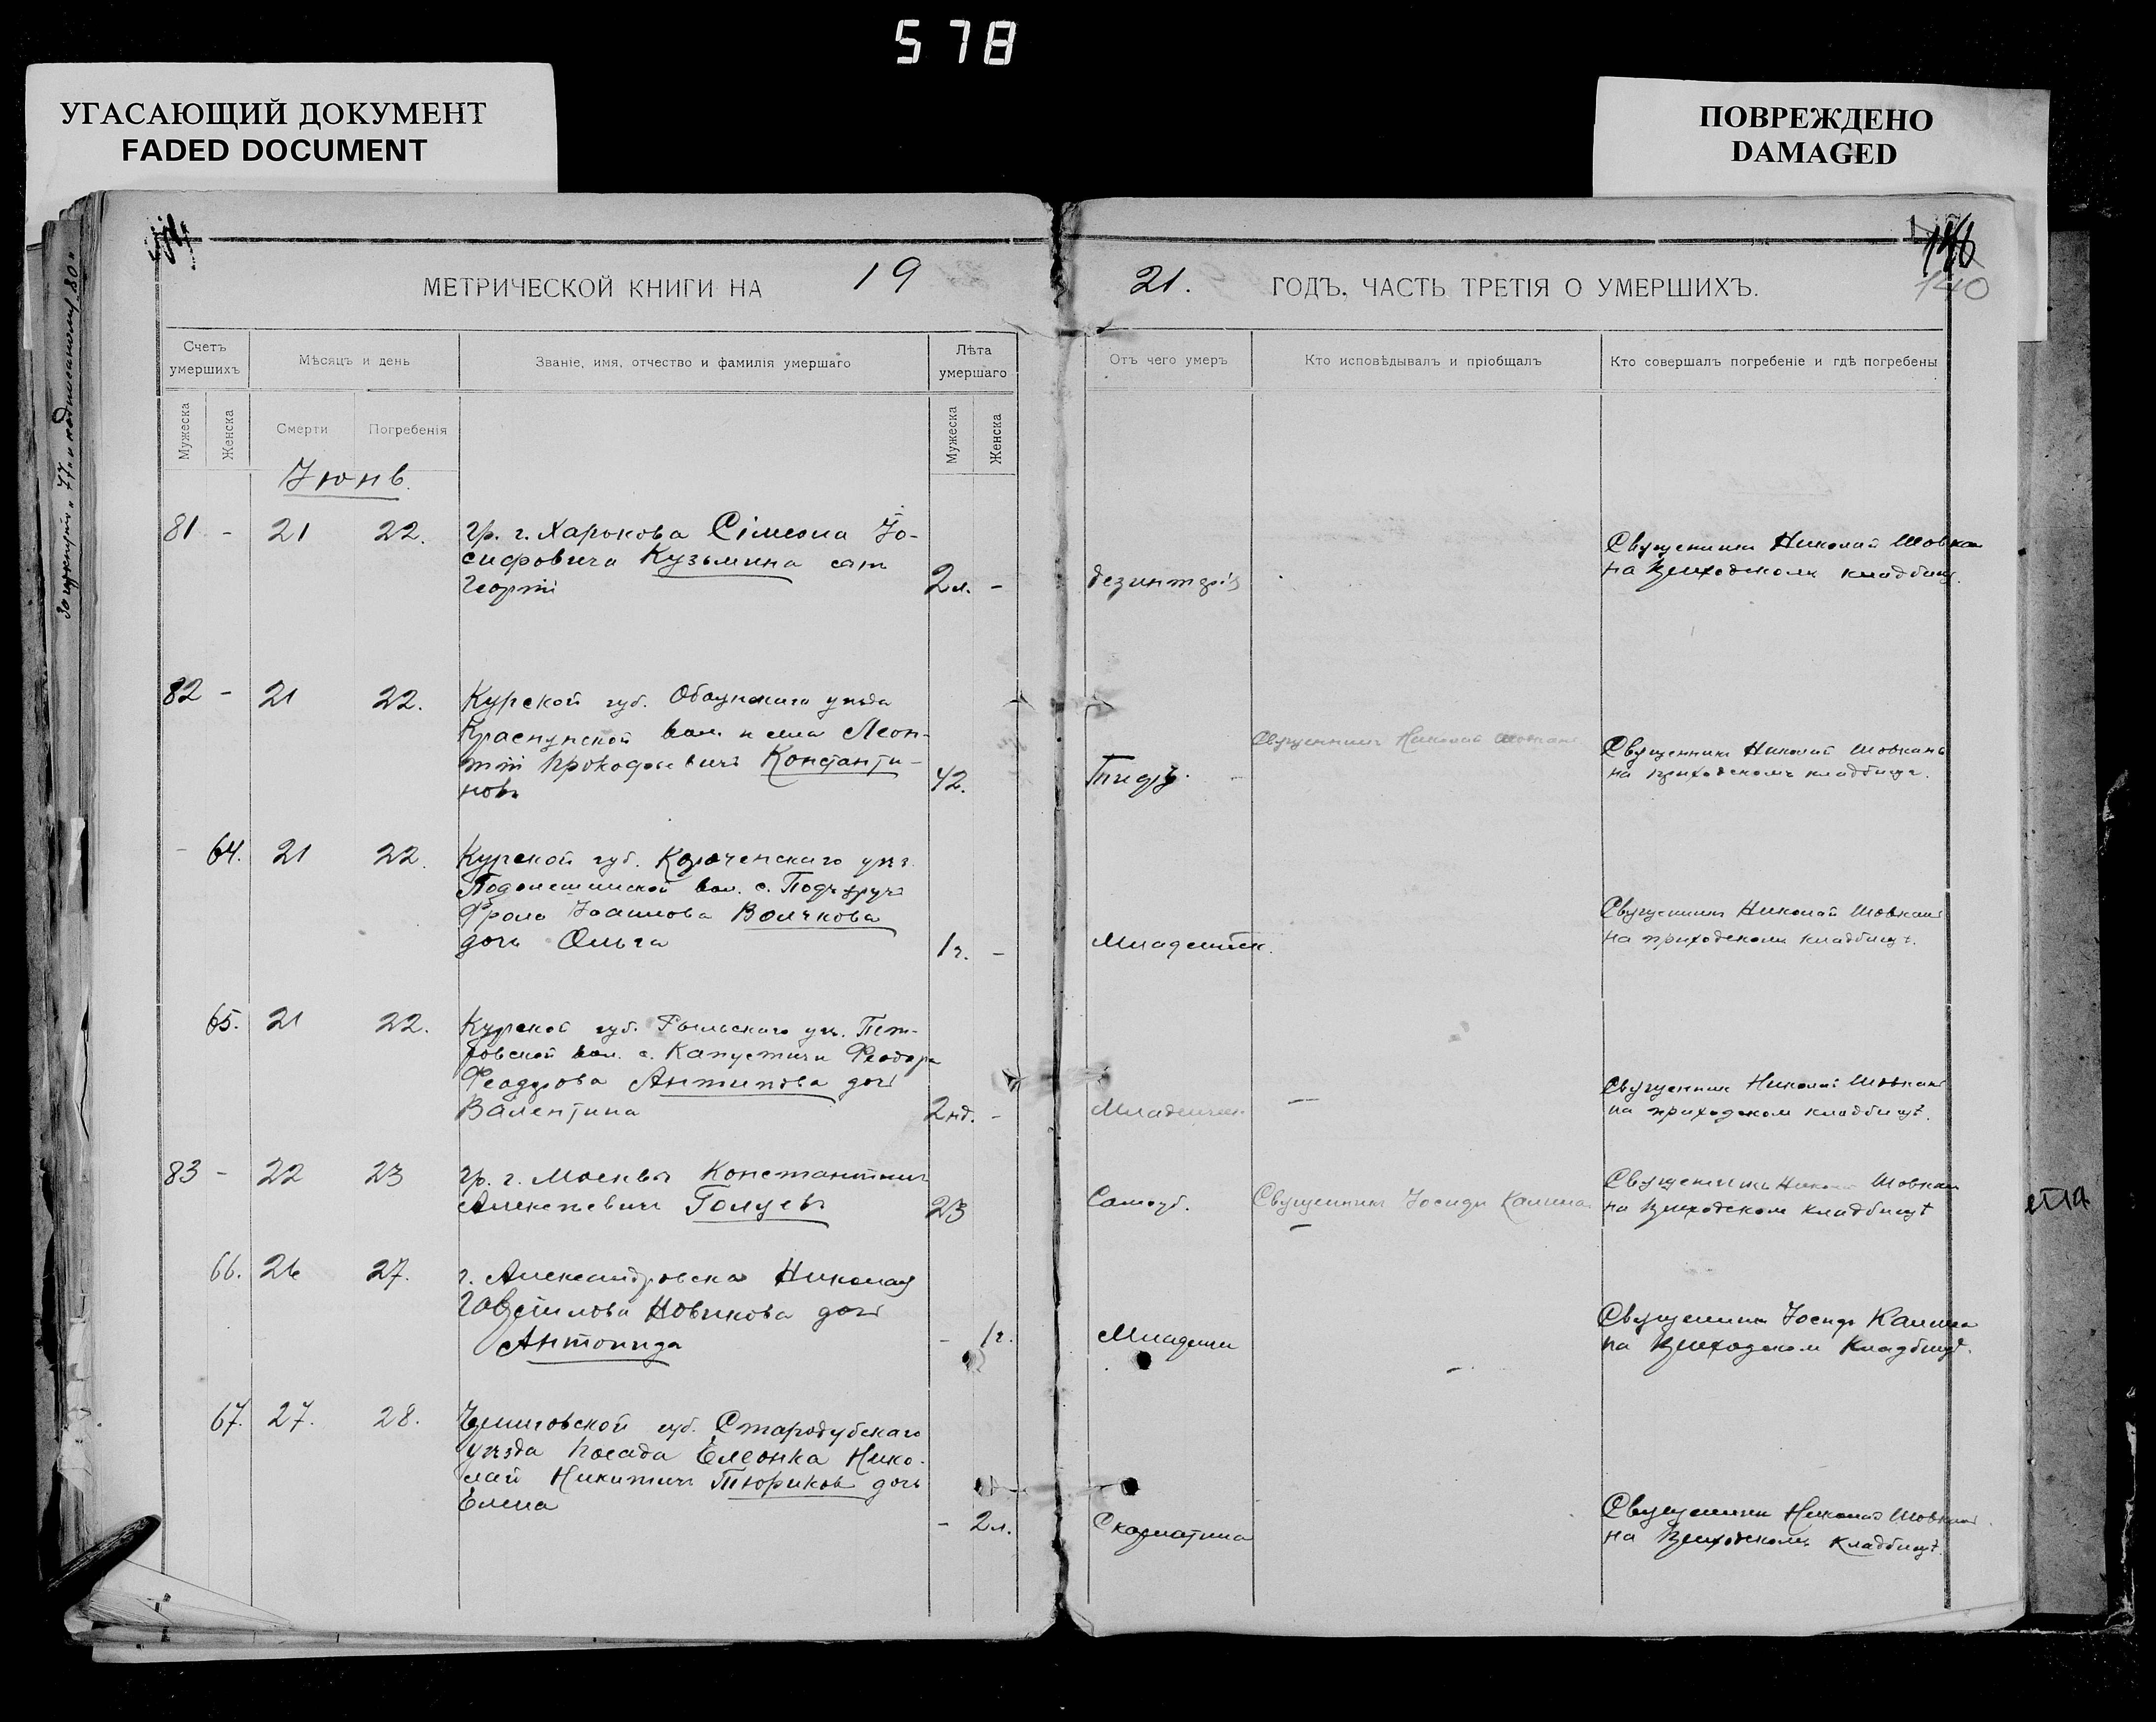 578
УГАСАЮЩИЙ ДОКУМЕНТ
FADED DOCUMENT
ПОВРЕЖДЕНО
DAMAGED
140
МЕТРИЧЕСКОЙ КНИГИ НА 19 21. ГОДЪ, ЧАСТЬ ТРЕТІЯ О УМЕРШИХЪ.
Счетъ умершихъ
Мѣсяцъ и день
Званіе, имя, отчество и фамилія умершаго
Лѣта умершаго
Отъ чего умеръ
Кто исповѣдывалъ и пріобщалъ
Кто совершалъ погребеніе и гдѣ погребены
Мужеска
Женска
Смерти
Погребенія
Мужеска
Женска
Іюнь.
81 - 21 22.
гр. г. Харькова Сімеона Іо-
сифовича Кузьмина сын
Георгій
2 л. -
дезинтерія
Священникъ Николай Шовкан
на приходскомъ кладбищ.
82 - 21 22.
Курской губ. Обоянскаго уѣзда
вол. Леон-
тій Прокофьевичъ Константи-
новъ
42.
Тифъ.
Священникъ Николай Шовканъ
Священникъ Николай Шовканъ
на приходскомъ кладбищѣ.
- 64. 21 22.
Курской губ. Корочанскаго уѣз.
вол. с.
Фрола Іоаннова Волчкова
дочь Ольга
1 г. -
Младенч.
Священникъ Николай Шовканъ
на приходскомъ кладбищѣ.
65. 21 22.
Курской губ. Рыльскаго уѣз. Пет-
ровской вол. с. Капустичи Феодора
Феодорова Антипова дочь
Валентина
2 нд. -
Младенчес.
Священник Николай Шовкан
на приходском кладбищѣ.
83 - 22 23
гр. г. Москвы Константинъ
Алексѣевичъ
23
Самоуб.
Священникъ Іосифъ Калина
Священникъ Никол Шовкан
на приходском кладбищѣ
66. 26 27.
г. Александровска Николая
Гавріилова Новикова дочь
Антонида
- 1 г.
Младенч
Священникъ Іосифъ Калина
на приходском кладбищѣ.
67. 27. 28.
Черниговской губ. Стародубскаго
уѣзда посада Елеонка Нико-
лай Никитичъ Тюриков дочь
Елена
- 2 л.
Скарлатина
Священникъ Николай Шовкан
на приходскомъ кладбищѣ.